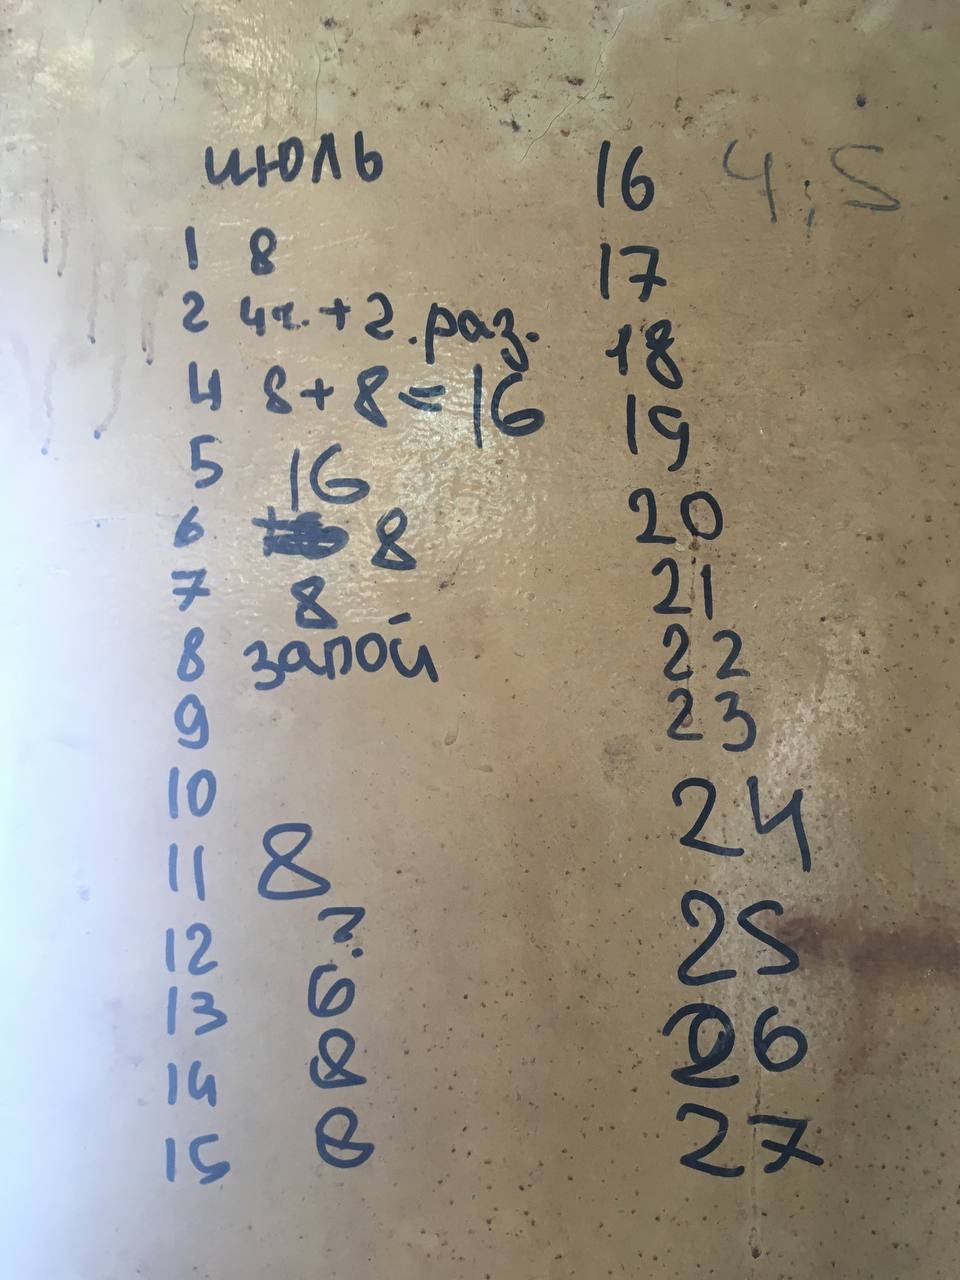 июль
1 8
2 4ч. + 2. раз.
4 8 + 8 = 16
5 16
6 8
7 8
8 запой
9
10
11 8
12 ?
13 6
14 8
15 8
16 4;5
17
18
19
20
21
22
23
24
25
26
27